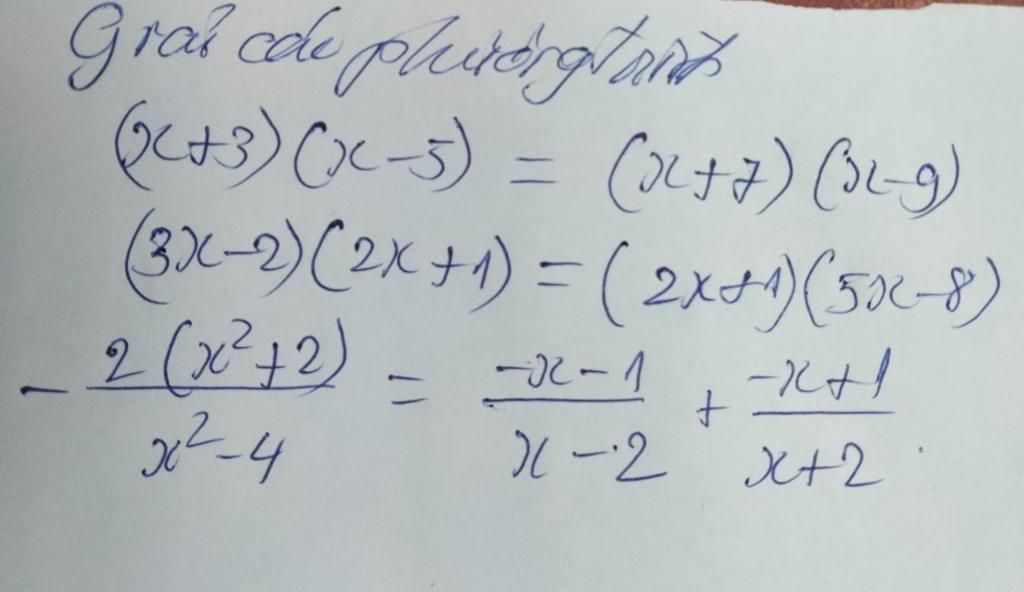 Giải các phương trình
(x+3)(x-5) = (x+7)(x-9)
(3x-2)(2x+1) = (2x+1)(5x-8)
- \frac{2(x^2+2)}{x^2-4} = \frac{-x-1}{x-2} + \frac{-x+1}{x+2}.